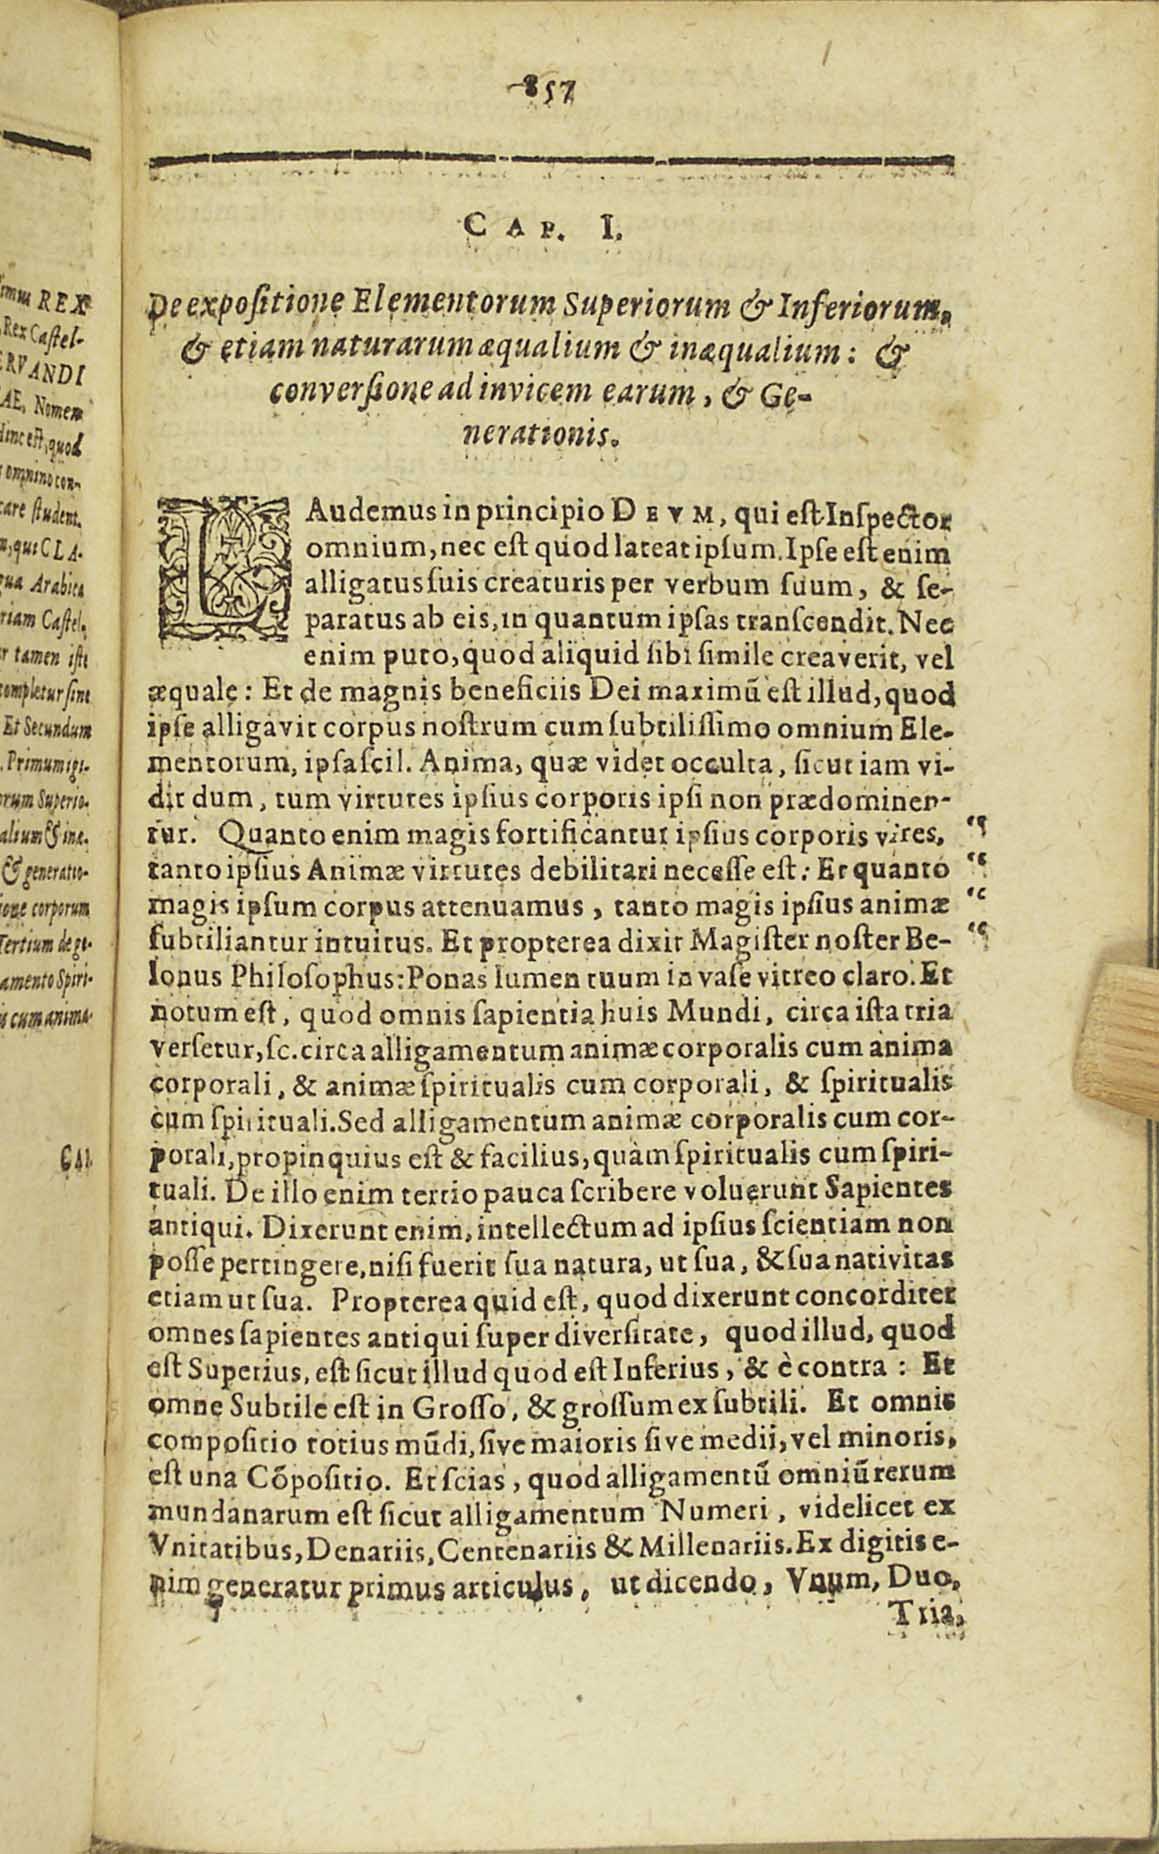 mum REX
Rex Castel-
ERVANDI
AE, Nomem
dinc est, quod
omnino con-
care student.
qui CLA-
qua Arabica
riam Castel-
r tamen isti
completur sint
Et Secundum
. Primum igi-
orum Superio-
alium & inæ-
& generatio-
ione corporum
Tertium de ge-
amento Spiri-
cum anima.
CAP.
857
CAP. I.
De expositione Elementorum Superiorum & Inferiorum,
& etiam naturarum æqualium & inæqualium: &
conversione ad invicem earum, & Ge-
nerationis.
LAudemus in principio DEVM, qui est Inspector
omnium, nec est quod lateat ipsum. Ipse est enim
alligatus suis creaturis per verbum suum, & se-
paratus ab eis, in quantum ipsas transcendit. Nec
enim puto, quod aliquid sibi simile creaverit, vel
æquale: Et de magnis beneficiis Dei maximū est illud, quod
ipse alligavit corpus nostrum cum subtilissimo omnium Ele-
mentorum, ipsa scil. Anima, quæ videt occulta, sicut iam vi-
dit dum, tum virtutes ipsius corporis ipsi non prædominen-
tur. Quanto enim magis fortificantur ipsius corporis vires,
tanto ipsius Animæ virtutes debilitari necesse est: Et quanto
magis ipsum corpus attenuamus, tanto magis ipsius animæ
subtiliantur intuitus. Et propterea dixit Magister noster Be-
lonus Philosophus: Ponas lumen tuum in vase vitreo claro. Et
notum est, quod omnis sapientia huis Mundi, circa ista tria
versetur, sc. circa alligamentum animæ corporalis cum anima
corporali, & animæ spiritualis cum corporali, & spiritualis
cum spirituali. Sed alligamentum animæ corporalis cum cor-
porali, propinquius est & facilius, quàm spiritualis cum spiri-
tuali. De illo enim tertio pauca scribere voluerunt Sapientes
antiqui. Dixerunt enim, intellectum ad ipsius scientiam non
posse pertingere, nisi fuerit sua natura, ut sua, & sua nativitas
etiam ut sua. Propterea quid est, quod dixerunt concorditer
omnes sapientes antiqui super diversitate, quod illud, quod
est Superius, est sicut illud quod est Inferius, & è contra: Et
omne Subtile est in Grosso, & grossum ex subtili. Et omnis
compositio totius mūdi, sive maioris sive medii, vel minoris,
est una Cōpositio. Et scias, quod alligamentū omniū rerum
mundanarum est sicut alligamentum Numeri, videlicet ex
Vnitatibus, Denariis, Centenariis & Millenariis. Ex digitis e-
nim generatur primus articulus, ut dicendo, Vnum, Duo,
Tria,